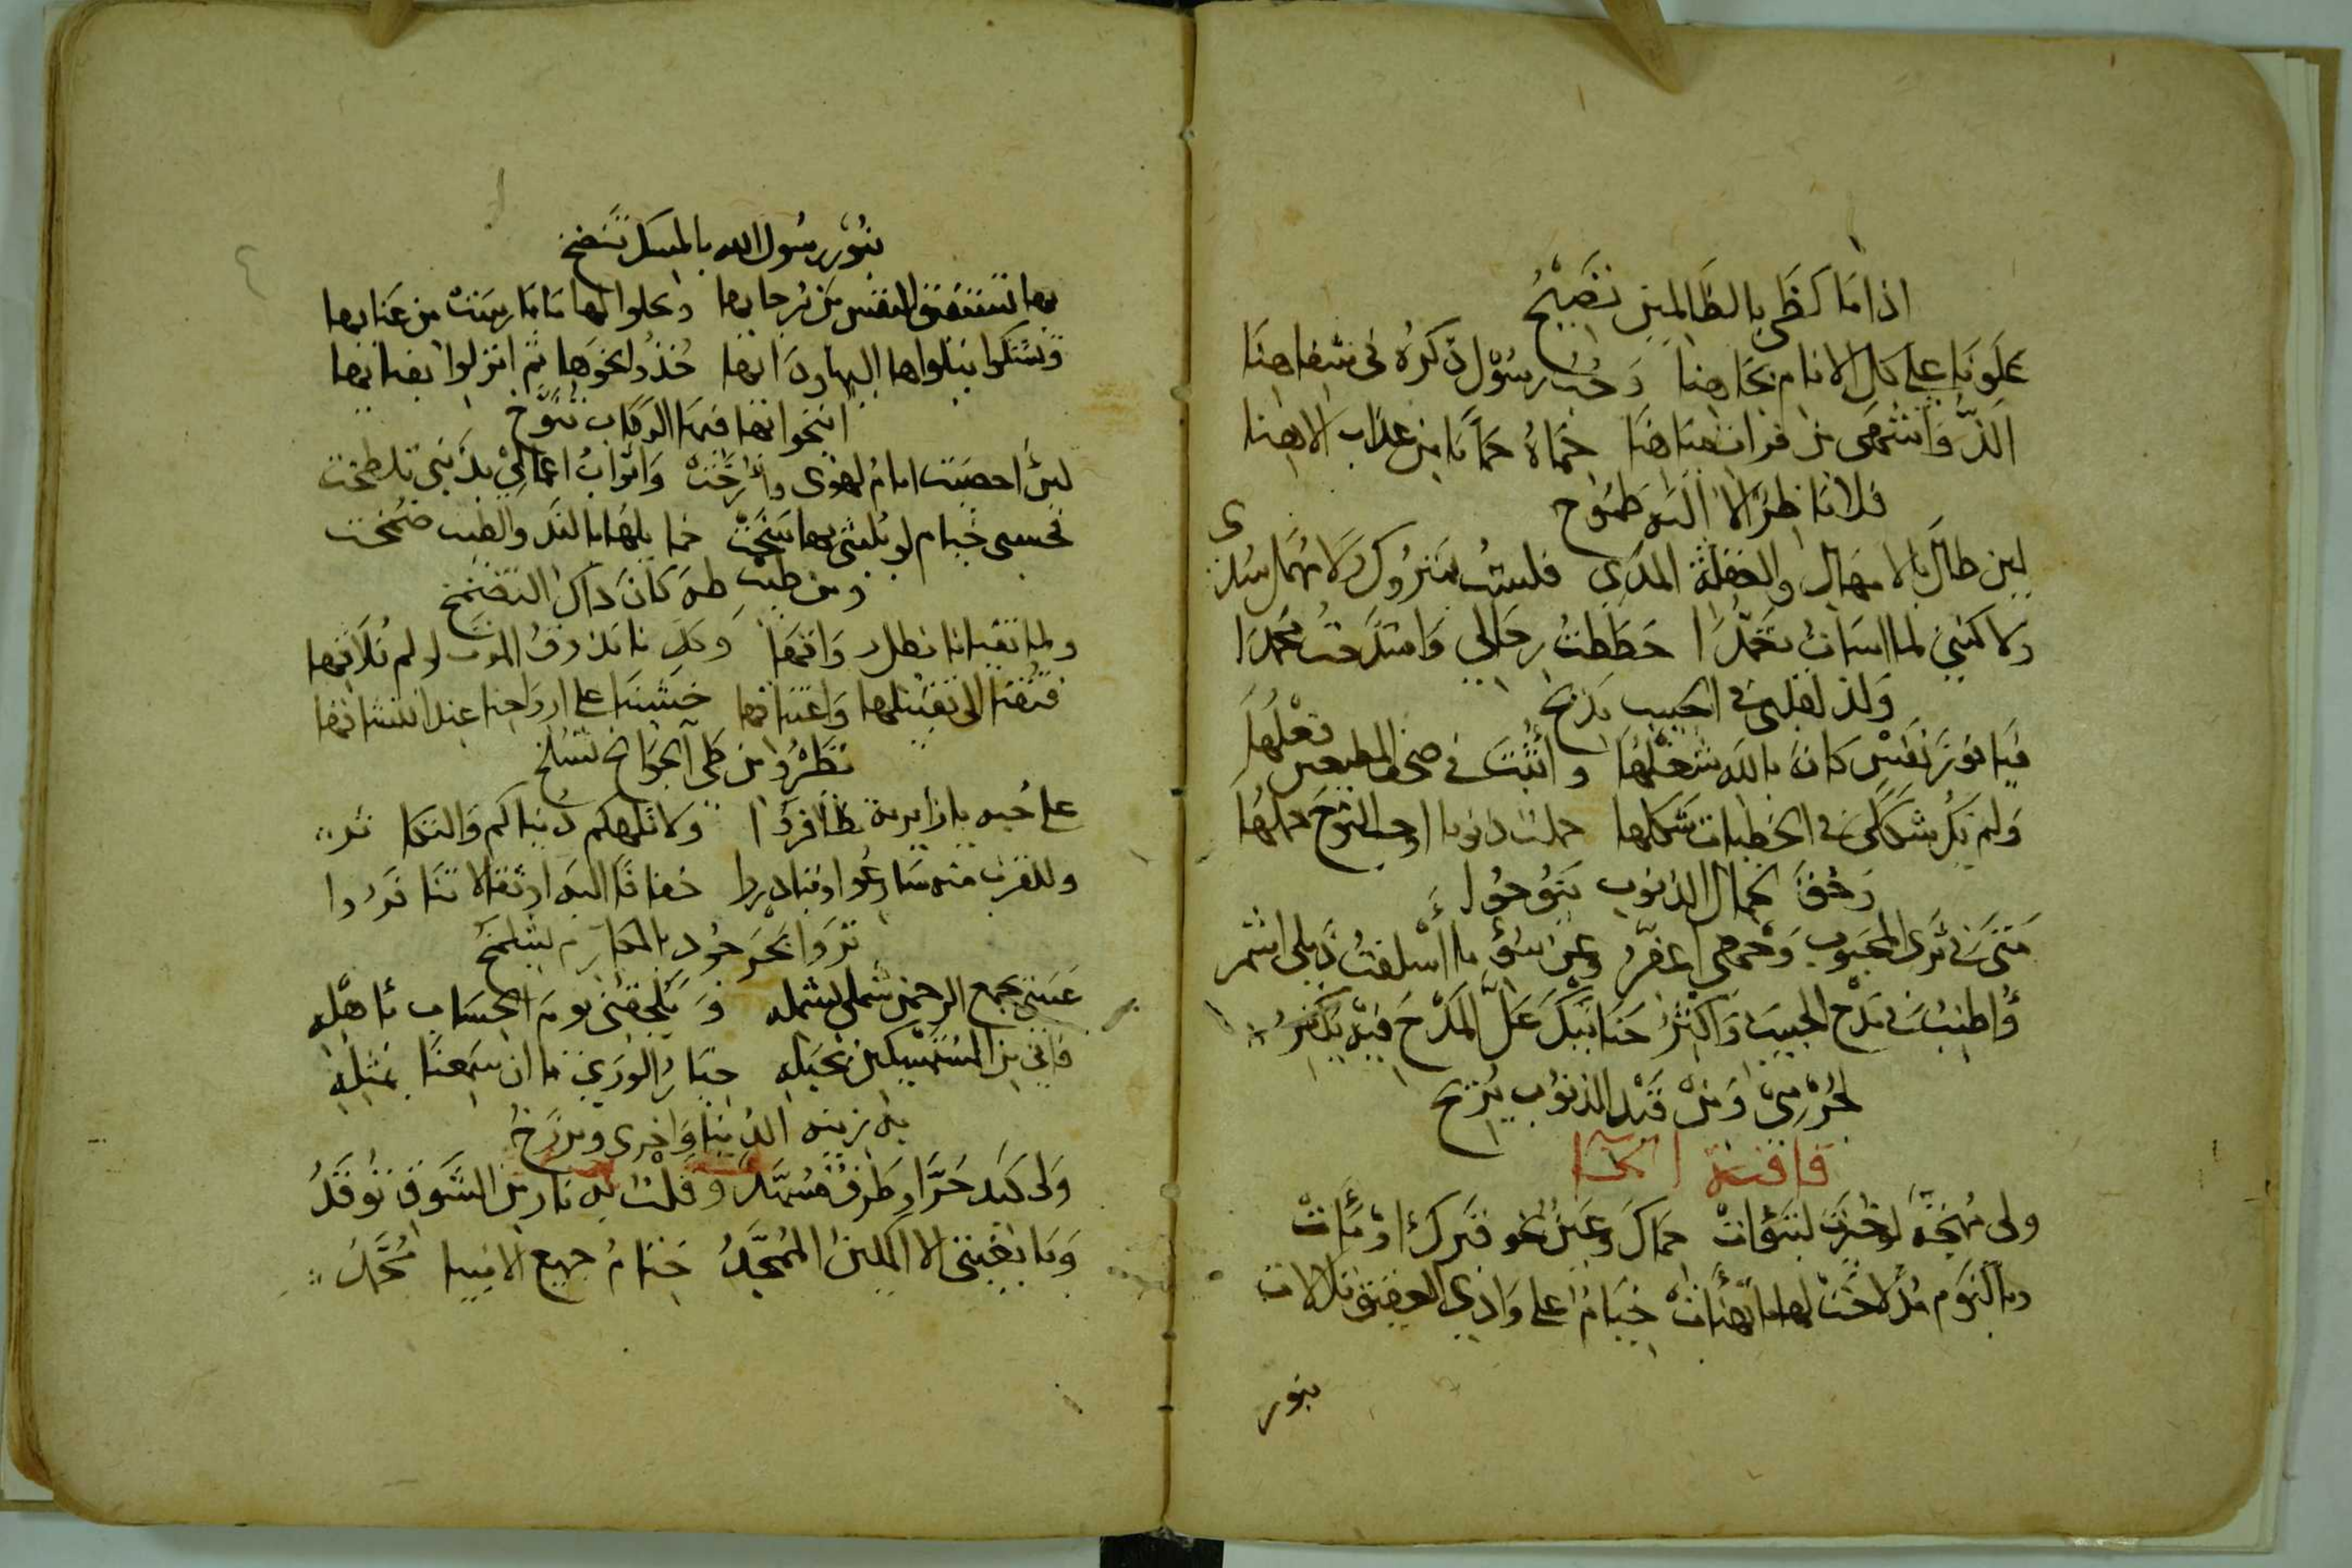 اذا ما لظى بالظالمين تصيح
علونا على كل الانام بجاهنا وحب رسول ذكره في شفاهنا
الذ واشهى من فرات مياهنا حماه حمانا من عذاب الاهنا
فلا ناظر الا اليه طموح
لين طال بالامهال والغفلة المدى فلست بمتروك ولا مهمل سدى
ولاكنني لما اسات تعمدا حططت رحالي وامتدحت محمدا
ولذ لقلبي في الحبيب مديح
فيا فوز نفس كان بالله شغلها واثبت في صحف المطيعين فعلها
ولم يك شكلي في الخطيات شكلها حملت ذنوبا اوجب النوح حملها
وحق لحمال الذنوب ينوح
متى في ثرى المحبوب وجهي اعفر وعن سوء ما اسلفت ذيلي اشمر
واطنب في مدح الحبيب واكثر جنابك عل المدح فيه يكفر
لجرمي ومن قيد الذنوب يريح
قافية الخا
ولي مهجة لو خيرت لتبوات حماك وعين نحو قبرك اومات
وما اليوم مذ لاحت لها ما تهنات خيام على وادي العقيق تلالات
بنور
بنور رسول الله بالمسك تنضخ
بها تستفيق النفس من برحايها ويحلوا لها ما مارست من عنايها
وتشكوا ببلواها اليها ودايها خذوا نحوها ثم انزلوا بفنايها
انيخوا بها فيها الركاب تنوخ
لين احصيت ايام لهوي وارخت واثواب اعمالي بذنبي تلطخت
فحسبي خيام لو بلثمي بها سخت خمايلها بالند والطيب ضمخت
ومن طيب طه كان ذاك التضمخ
ولما تقيانا بظل وافيها وكل نا يذوق الموت لو لم يلاقها
فتقنا الى تقبيلها واعتناقها خشينا على ارواحنا عند انتشاقها
تطير ومن طي الجوانح تسلخ
على حبه يا زايرية تظافروا ولا تلهكم دنياكم والتكاثر
وللقرب منه سارعوا وتبادروا خفافا اليه او ثقالا تنافروا
تروا بحر جود بالمكارم يشلمخ
عسى يجمع الرحمن شملي بشمله ويلحقني يوم الحساب باهله
فاني من المستمسكين بحبله خيار الورى ما ان سمعنا بمثله
به زينة الدنيا واخرى وبرزخ
ولي كبد حرا وطرف مسهد وقلب به نار من الشوق توقد
وما بغيتي الا المكين الممجد ختام جميع الانبيا محمد